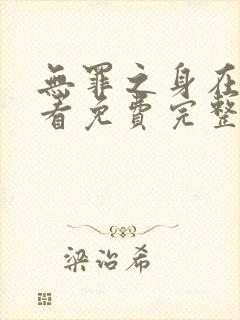 無罪之身在
看免費完整
梁治希